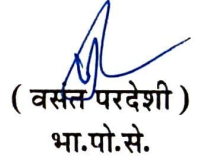 ( वसंत परदेशी )
भा.पो.से.